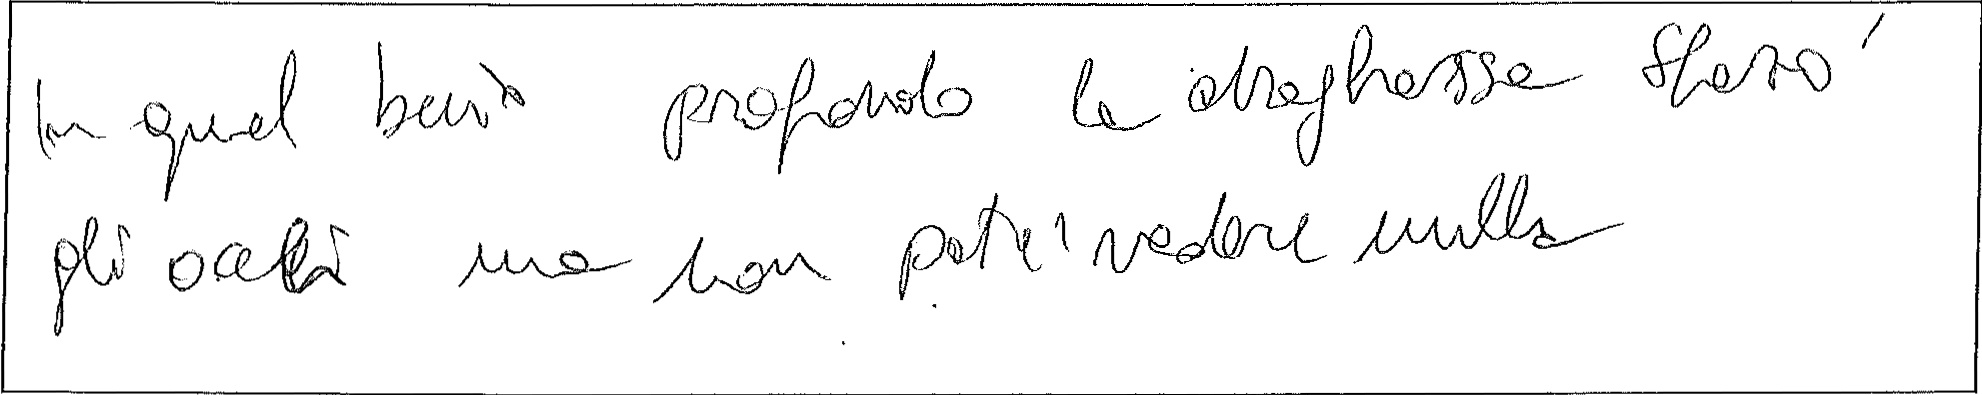 In quel buio profondo la draghessa sferrò
gli occhi ma non poté vedere nulla